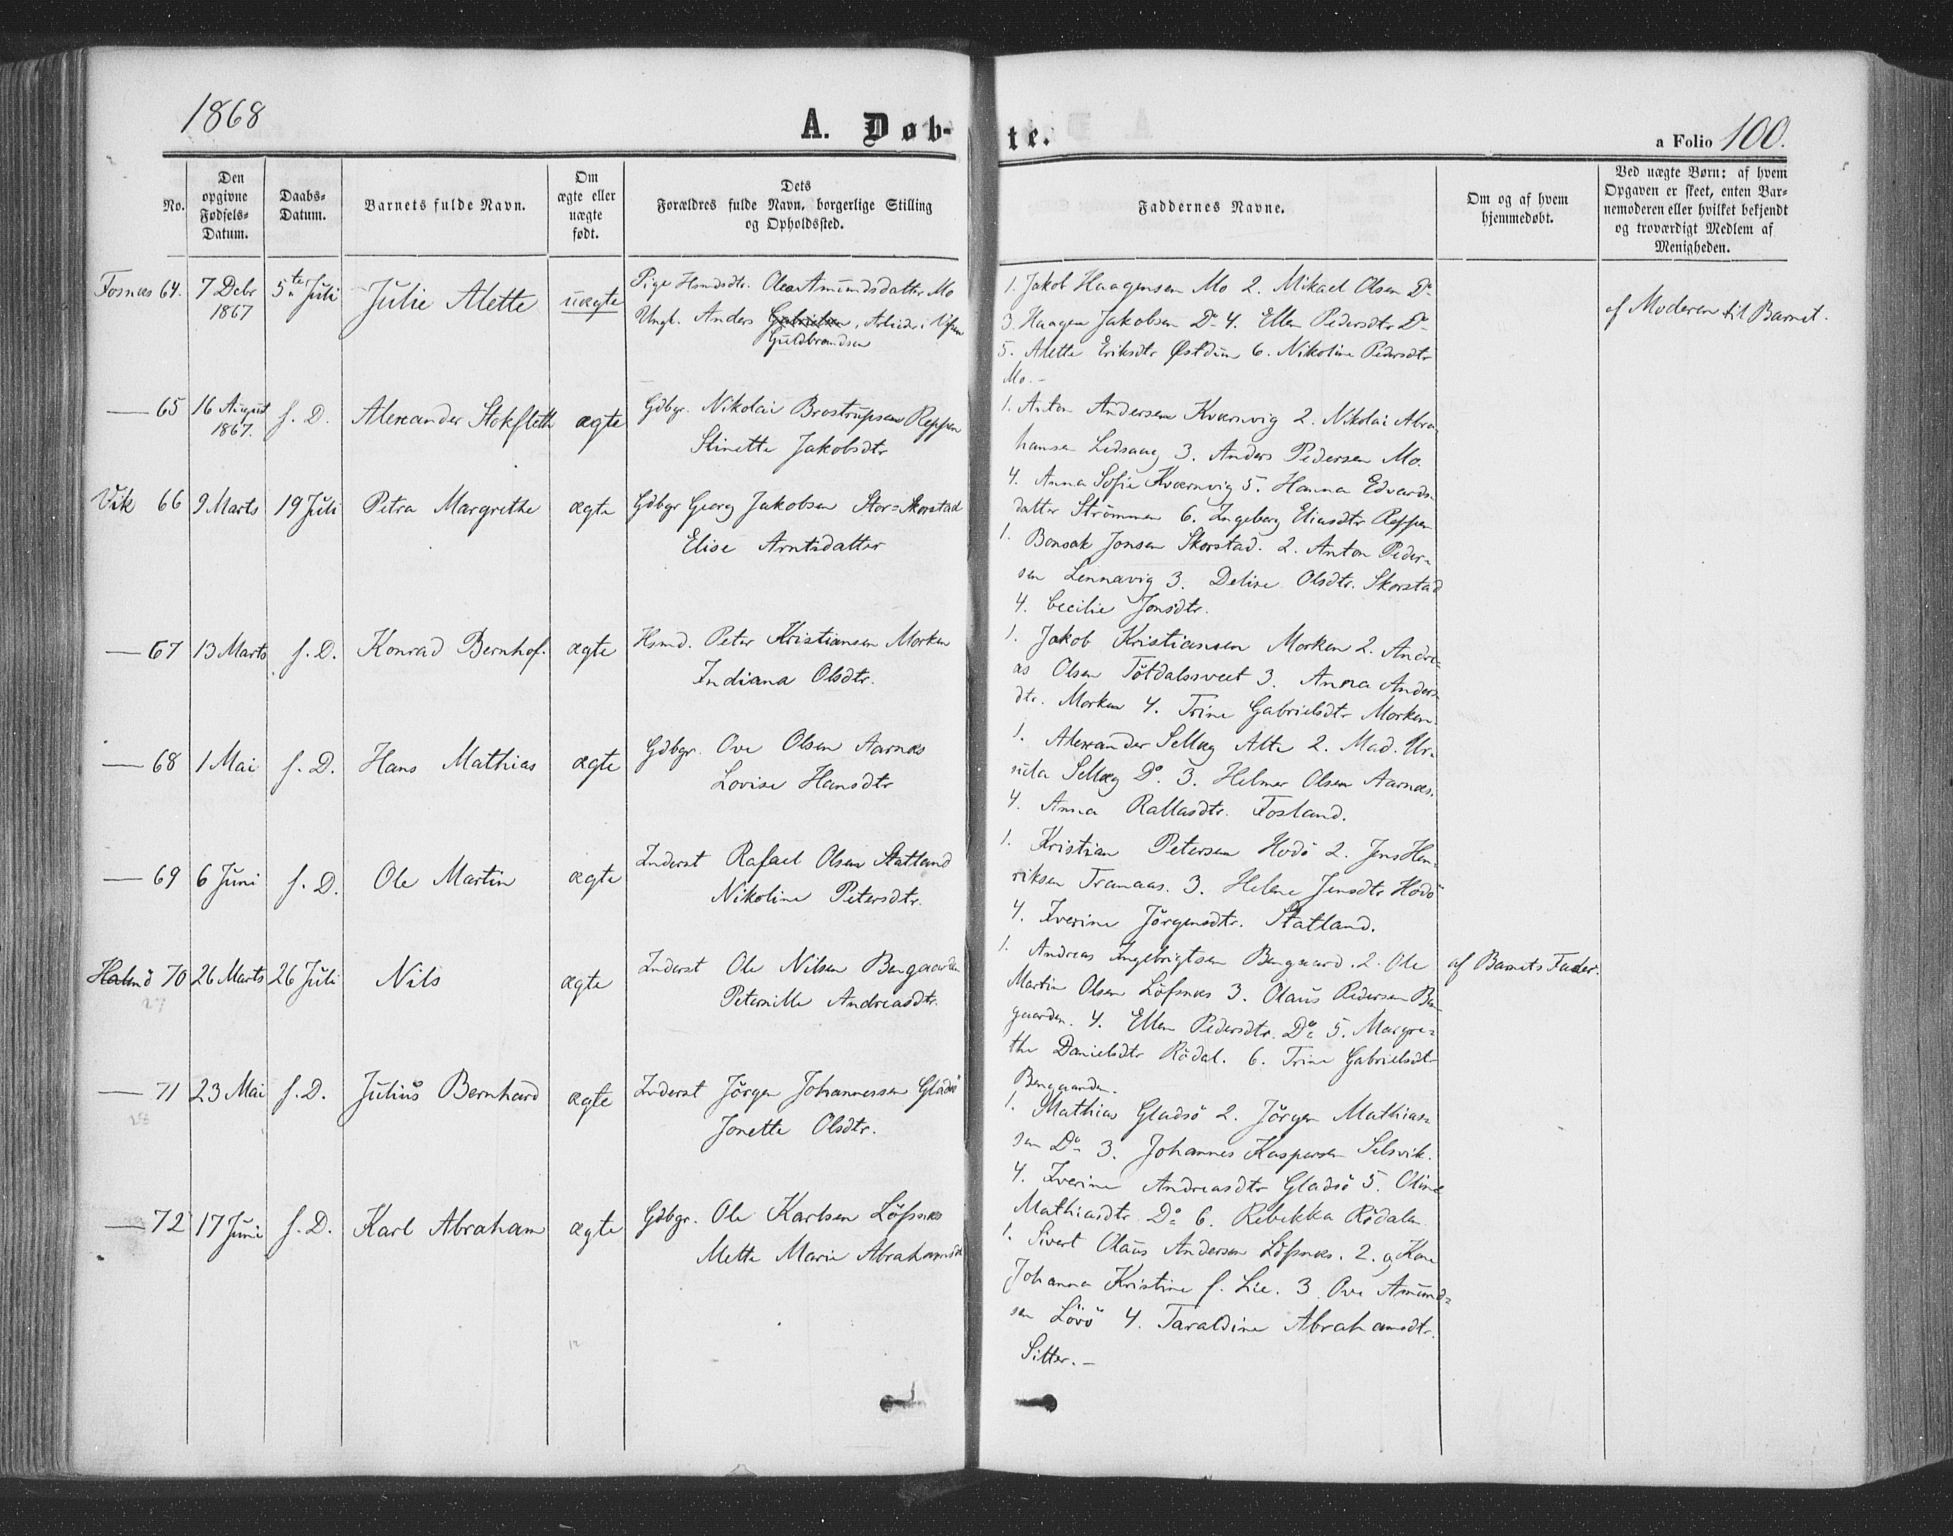 1868
A. Døb-
te.
a Folio 100.
No.
Den opgivne Fødsels-Datum.
Daabs-Datum.
Barnets fulde Navn.
Om ægte eller uægte født.
Dets Forældres fulde Navn, borgerlige Stilling og Opholdssted.
Faddernes Navne.
Om og af hvem hjemmedøbt.
Ved uægte Børn: af hvem Opgaven er skeet, enten Barnemoderen eller hvilket bekjendt og troværdigt Medlem af Menigheden.
Fosnæs 64. 7 Debr 1867 5te Juli Julie Alette uægte
Pige Hsmdsdtr. Olea Amundsdatter Mo
Ungk. Anders Gabrielsen, Arbeider i
Guldbrandsen
1. Jakob Haagensen Mo 2. Mikael Olsen Do
3. Haagen Jakobsen Do 4. Ellen Pedersdtr Do
5. Alette Eriksdtr Østduun 6. Nikoline Pedersdtr
Mo.-
af Moderen til Barnet.
— 65 16 August 1867. s. D. Alexander Stokfleth ægte
Gdbgr. Nikolai Brostrupsen Reppen
Stinette Jakobsdtr
1. Anton Andersen Kværnvig 2. Nikolai Abra-
hamsen Ledsaag 3. Anders Pedersen Mo.
4. Anna Sofie Kværnvig 5. Hanna Edvards-
datter Strømmen 6. Ingeborg Eliasdtr Reppen
Vik 66 9 Marts 19 Juli Petra Margrethe ægte
Gdbgr Georg Jakobsen Stor=Skorstad
Elise Arntsdatter
1. Bonsak Jonsen Skorstad. 2. Anton Peder-
sen Lennavig 3. Deline Olsdtr. Skorstad
4. Cecilie Jonsdtr.
— 67 13 Marts s. D. Konrad Bernhof. ægte
Hsmd. Peter Kristiansen Morken
Indiana Olsdtr.
1. Jakob Kristiansen Morken 2. Andre-
as Olsen Tøtdalssveet 3. Anna Anders-
dtr. Morken 4. Trine Gabrielsdtr Morken.
— 68 1 Mai s. D. Hans Mathias ægte
Gdbgr. Ove Olsen Aarnæs
Lovise Hansdtr
1. Alexander Sellæg Alte 2. Mad. Ur-
sula Sellæg Do. 3. Helmer Olsen Aarnæs.
4. Anna Rallasdtr. Fosland.
— 69 6 Juni s. D. Ole Martin ægte
Inderst Rafael Olsen Statland
Nikoline Petersdtr.
1. Kristian Petersen Hodø 2. Jens Hen-
riksen Tranaas. 3. Helene Jensdtr Hodø
4. Iverine Jørgensdtr. Statland.
70 26 Marts 26 Juli Nils ægte
Inderst Ole Nilsen Bengaarden
Peternille Andreasdtr.
1. Andreas Ingebrigtsen Bengaard. 2. Ole
Martin Olsen Løfsnæs 3. Olaus Pedersen Ben-
gaarden. 4. Ellen Pedersdtr. Do 5. Margre-
the Danielsdtr Rødal. 6. Trine Gabrielsdtr
Bengaarden.
af Barnets Fader.
27
— 71 23 Mai s. D. Julius Bernhard ægte
Inderst Jørgen Johannessen Gladsø
Jonette Olsdtr.
1. Mathias Gladsø 2. Jørgen Mathias-
sen Do 3. Johannes Kaspersen Selsvik.
4. Iverine Andreasdtr Gladsø 5. Oline
Mathiasdtr. Do 6. Rebekka Rødalen
28
— 72 17 Juni s. D. Karl Abraham ægte
Gdbgr. Ole Karlsen Løfsnæs
Mette Marie Abrahamsdtr
1. Sivert Olaus Andersen Løfsnæs. 2. og Kone
Johanna Kristine f. Lie. 3. Ove Amund-
sen Løvø 4. Taraldine Abrahamsdtr.
Sitter.-